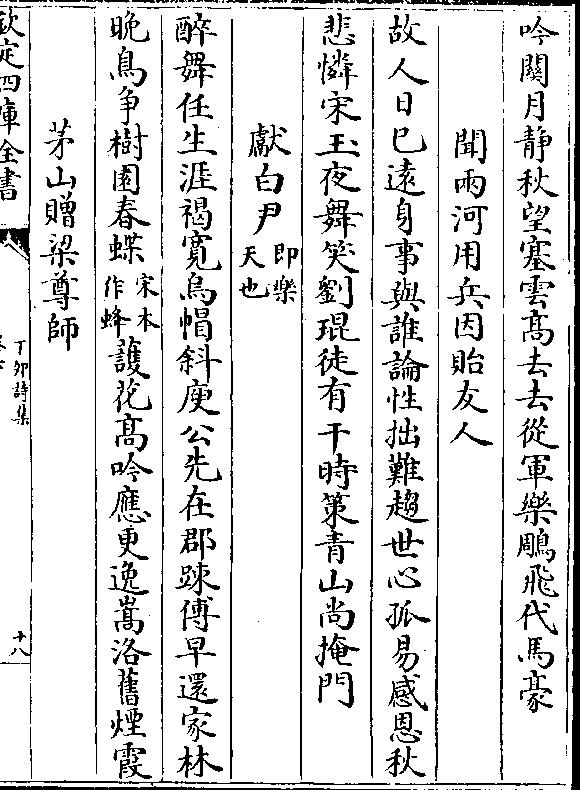 吟關月静秋望塞雲髙去去從軍樂鵰飛代馬豪
聞兩河用兵因貽友人
故人日已遠身事與誰論性拙難趨世心孤易感恩秋
悲憐宋玉夜舞笑劉琨徒有干時策青山尚掩門
獻白尹即樂天也
醉舞任生涯褐寛烏帽斜庾公先在郡疎傅早還家林
晚鳥争樹園春蝶宋本作蜂護花髙吟應更逸嵩洛舊煙霞
茅山贈梁尊師
欽定四庫全書
丁卯詩集
十八